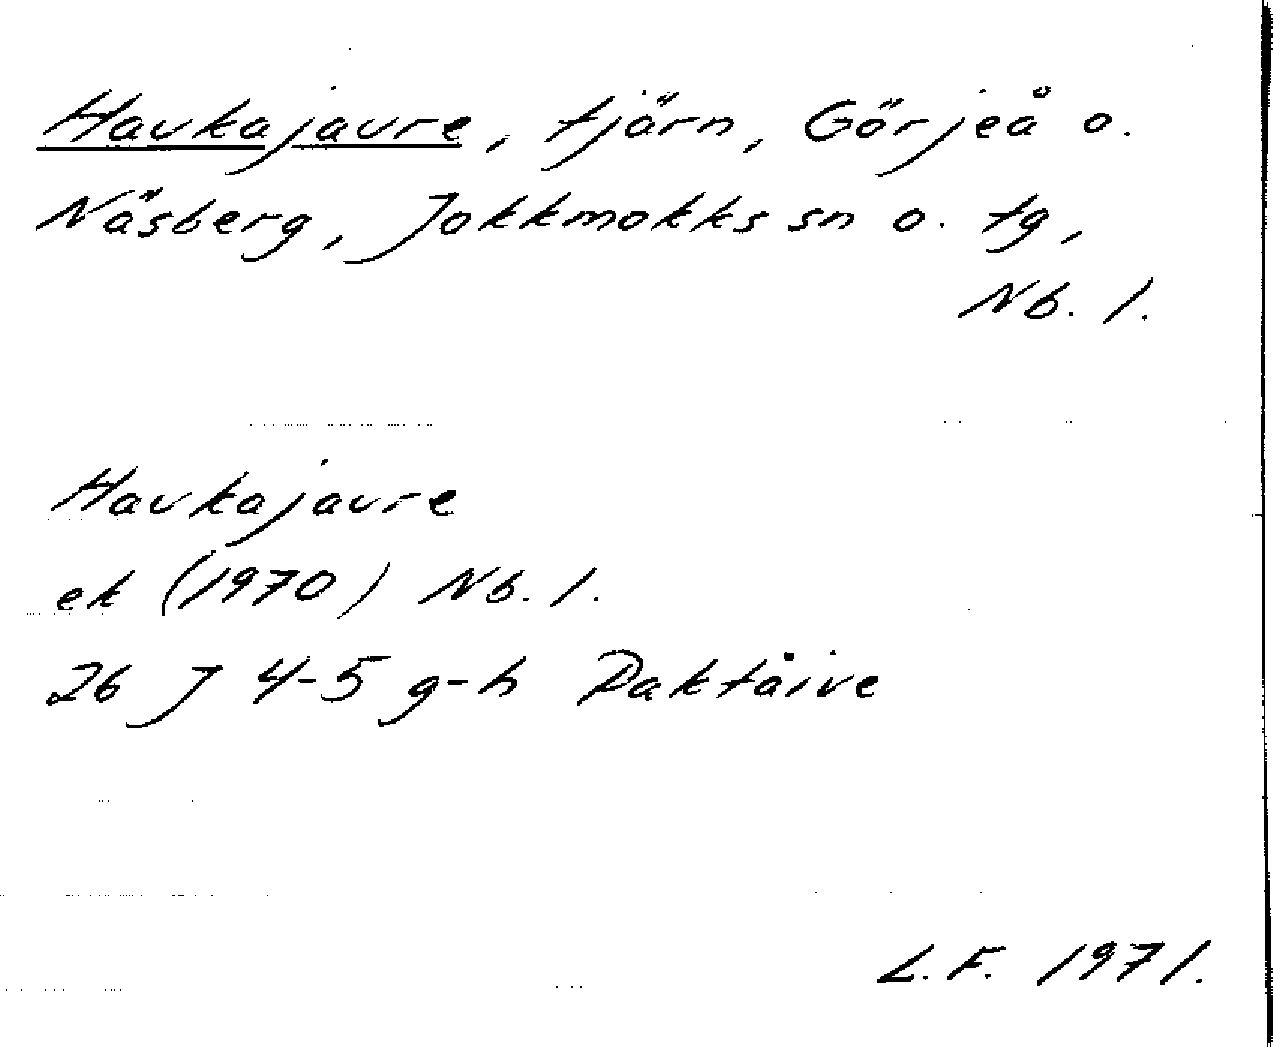 Haukajaure, tjärn, Görjeå o.
Näsberg, Jokkmokks sn o. tg,
Nb. l.
Haukajaure
ek (1970) Nb. l.
26 J 4-5 g-h Paktåive
L.F. 1971.